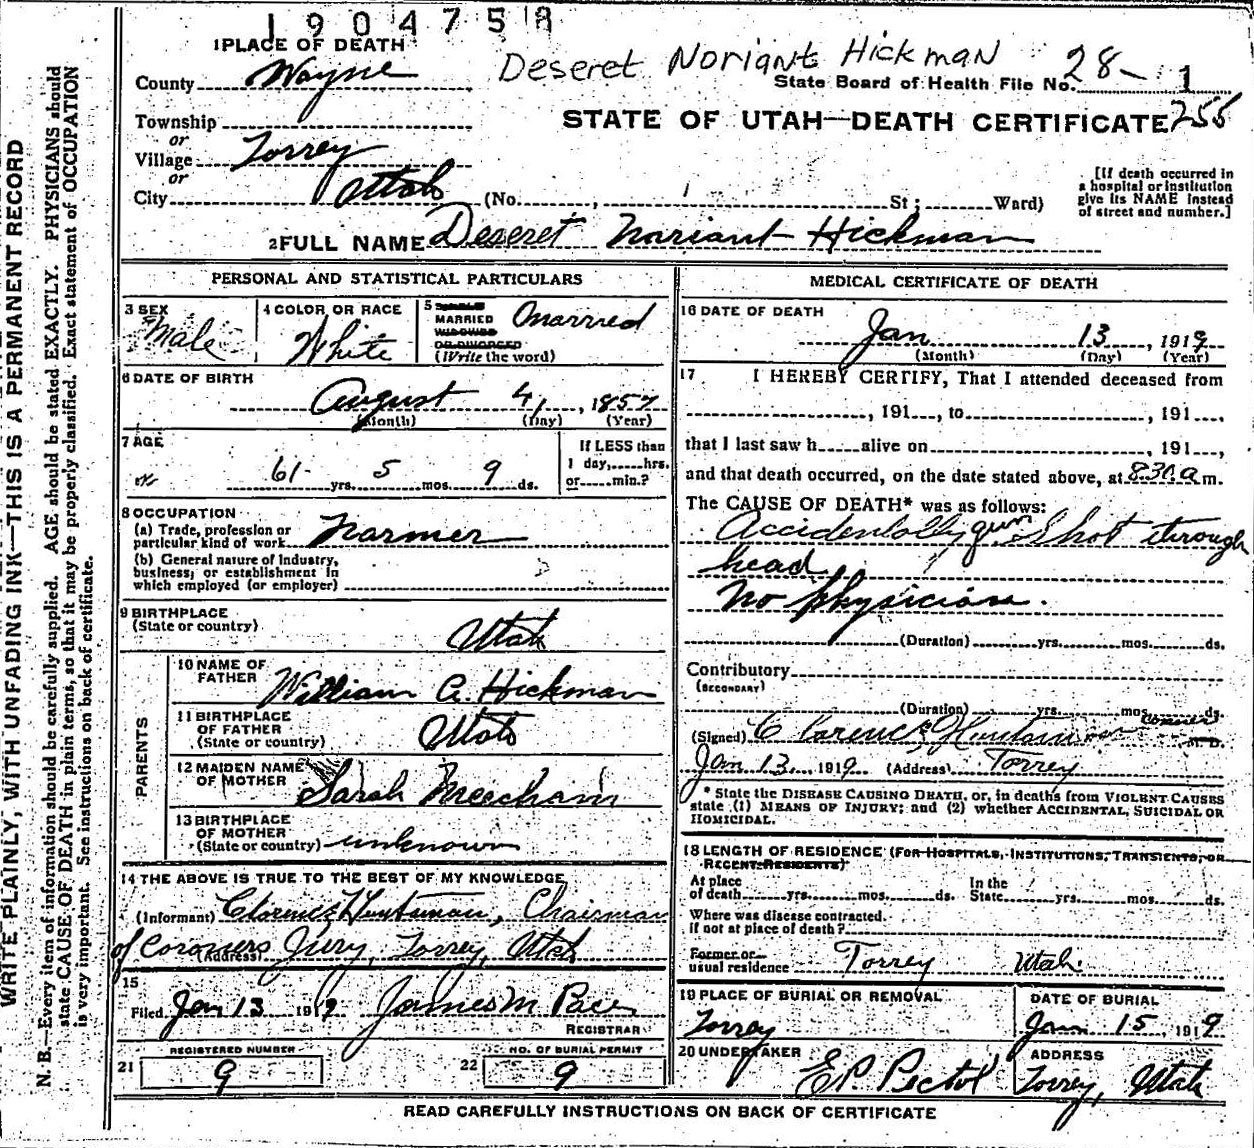 1904758
Deseret Noriant Hickman
State Board of Health File No. 28- 1
255
STATE OF UTAH—DEATH CERTIFICATE
1 PLACE OF DEATH
County Wayne
Township
or
Village Torrey
or
City Utah (No. , St; Ward)
[If death occurred in
a hospital or institution
give its NAME instead
of street and number.]
2 FULL NAME Deseret Noriant Hickman
PERSONAL AND STATISTICAL PARTICULARS
3 SEX
Male
4 COLOR OR RACE
White
5 SINGLE
MARRIED
WIDOWED
OR DIVORCED
(Write the word)
Married
6 DATE OF BIRTH
August 4, 1857
(Month) (Day) (Year)
7 AGE
61 yrs. 5 mos. 9 ds.
If LESS than
1 day, hrs.
or min.?
8 OCCUPATION
(a) Trade, profession or
particular kind of work Farmer
(b) General nature of industry,
business, or establishment in
which employed (or employer)
9 BIRTHPLACE
(State or country) Utah
PARENTS
10 NAME OF
FATHER William A. Hickman
11 BIRTHPLACE
OF FATHER
(State or country) Utah
12 MAIDEN NAME
OF MOTHER Sarah Meecham
13 BIRTHPLACE
OF MOTHER
(State or country) unknown
14 THE ABOVE IS TRUE TO THE BEST OF MY KNOWLEDGE
(Informant) Clarence Huntsman, Chairman
of Coroners (Address) Jury, Torrey, Utah
15
Filed Jan 13 1919 James M Pace
REGISTRAR
21 REGISTERED NUMBER
9
22 NO. OF BURIAL PERMIT
9
MEDICAL CERTIFICATE OF DEATH
16 DATE OF DEATH
Jan 13, 1919
(Month) (Day) (Year)
17 I HEREBY CERTIFY, That I attended deceased from
, 191 , to , 191 ,
that I last saw h alive on , 191 ,
and that death occurred, on the date stated above, at 8:30 a m.
The CAUSE OF DEATH* was as follows:
Accidentally gun Shot through
head
No physician.
(Duration) yrs. mos. ds.
Contributory
(SECONDARY)
(Duration) yrs. mos. ds.
(Signed) Clarence Huntsman coroner M. D.
Jan 13, 1919 (Address) Torrey
* State the DISEASE CAUSING DEATH, or, in deaths from VIOLENT CAUSES
state (1) MEANS OF INJURY; and (2) whether ACCIDENTAL, SUICIDAL OR
HOMICIDAL.
18 LENGTH OF RESIDENCE (FOR HOSPITALS, INSTITUTIONS, TRANSIENTS, OR
RECENT RESIDENTS)
At place
of death yrs. mos. ds.
In the
State yrs. mos. ds.
Where was disease contracted.
if not at place of death?
Former or
usual residence Torrey Utah
19 PLACE OF BURIAL OR REMOVAL
Torrey
DATE OF BURIAL
Jan 15, 1919
20 UNDERTAKER
E.P. Pectol
ADDRESS
Torrey, Utah
READ CAREFULLY INSTRUCTIONS ON BACK OF CERTIFICATE
WRITE PLAINLY, WITH UNFADING INK—THIS IS A PERMANENT RECORD
N. B.—Every item of information should be carefully supplied. AGE should be stated EXACTLY. PHYSICIANS should
state CAUSE OF DEATH in plain terms, so that it may be properly classified. Exact statement of OCCUPATION
is very important. See instructions on back of certificate.